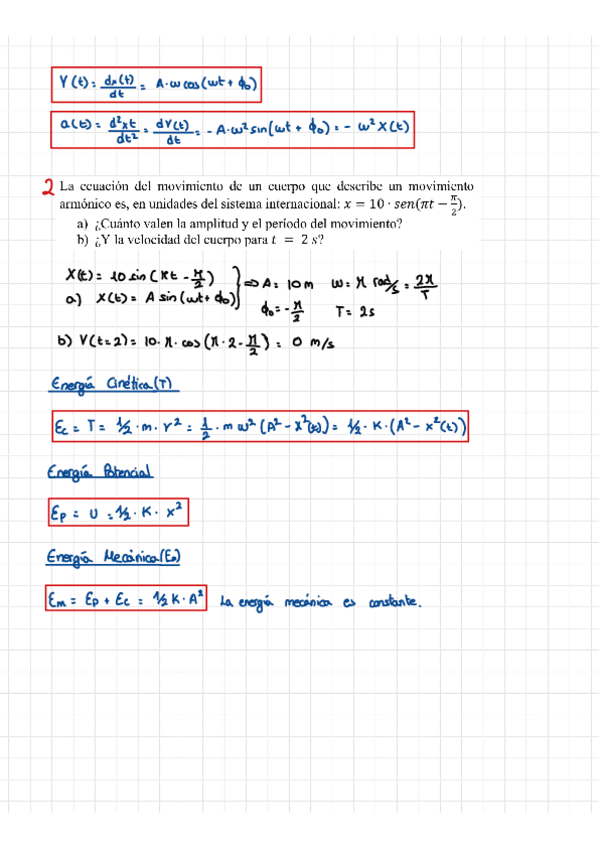 V(t) = dx(t)/dt = A·ω cos(ωt + ϕ₀)
a(t) = d²xt/dt² = dV(t)/dt = - A·ω² sin(ωt + ϕ₀) = - ω² X(t)
2 La ecuación del movimiento de un cuerpo que describe un movimiento
armónico es, en unidades del sistema internacional: x = 10 · sen(πt − π/2).
a) ¿Cuánto valen la amplitud y el período del movimiento?
b) ¿Y la velocidad del cuerpo para t = 2 s?
X(t) = 10 sin(πt - π/2) } ⇒ A = 10 m ω = π rad/s = 2π/T
a) X(t) = A sin(ωt + ϕ₀) ϕ₀ = - π/2 T = 2s
b) V(t=2) = 10·π·cos(π·2 - π/2) = 0 m/s
Energía Cinética (T)
Ec = T = 1/2 · m · v² = 1/2 · m ω² (A² - x²(t)) = 1/2 · K · (A² - x²(t))
Energía Potencial
Ep = U = 1/2 · K · x²
Energía Mecánica (Em)
Em = Ep + Ec = 1/2 K · A² La energía mecánica es constante.